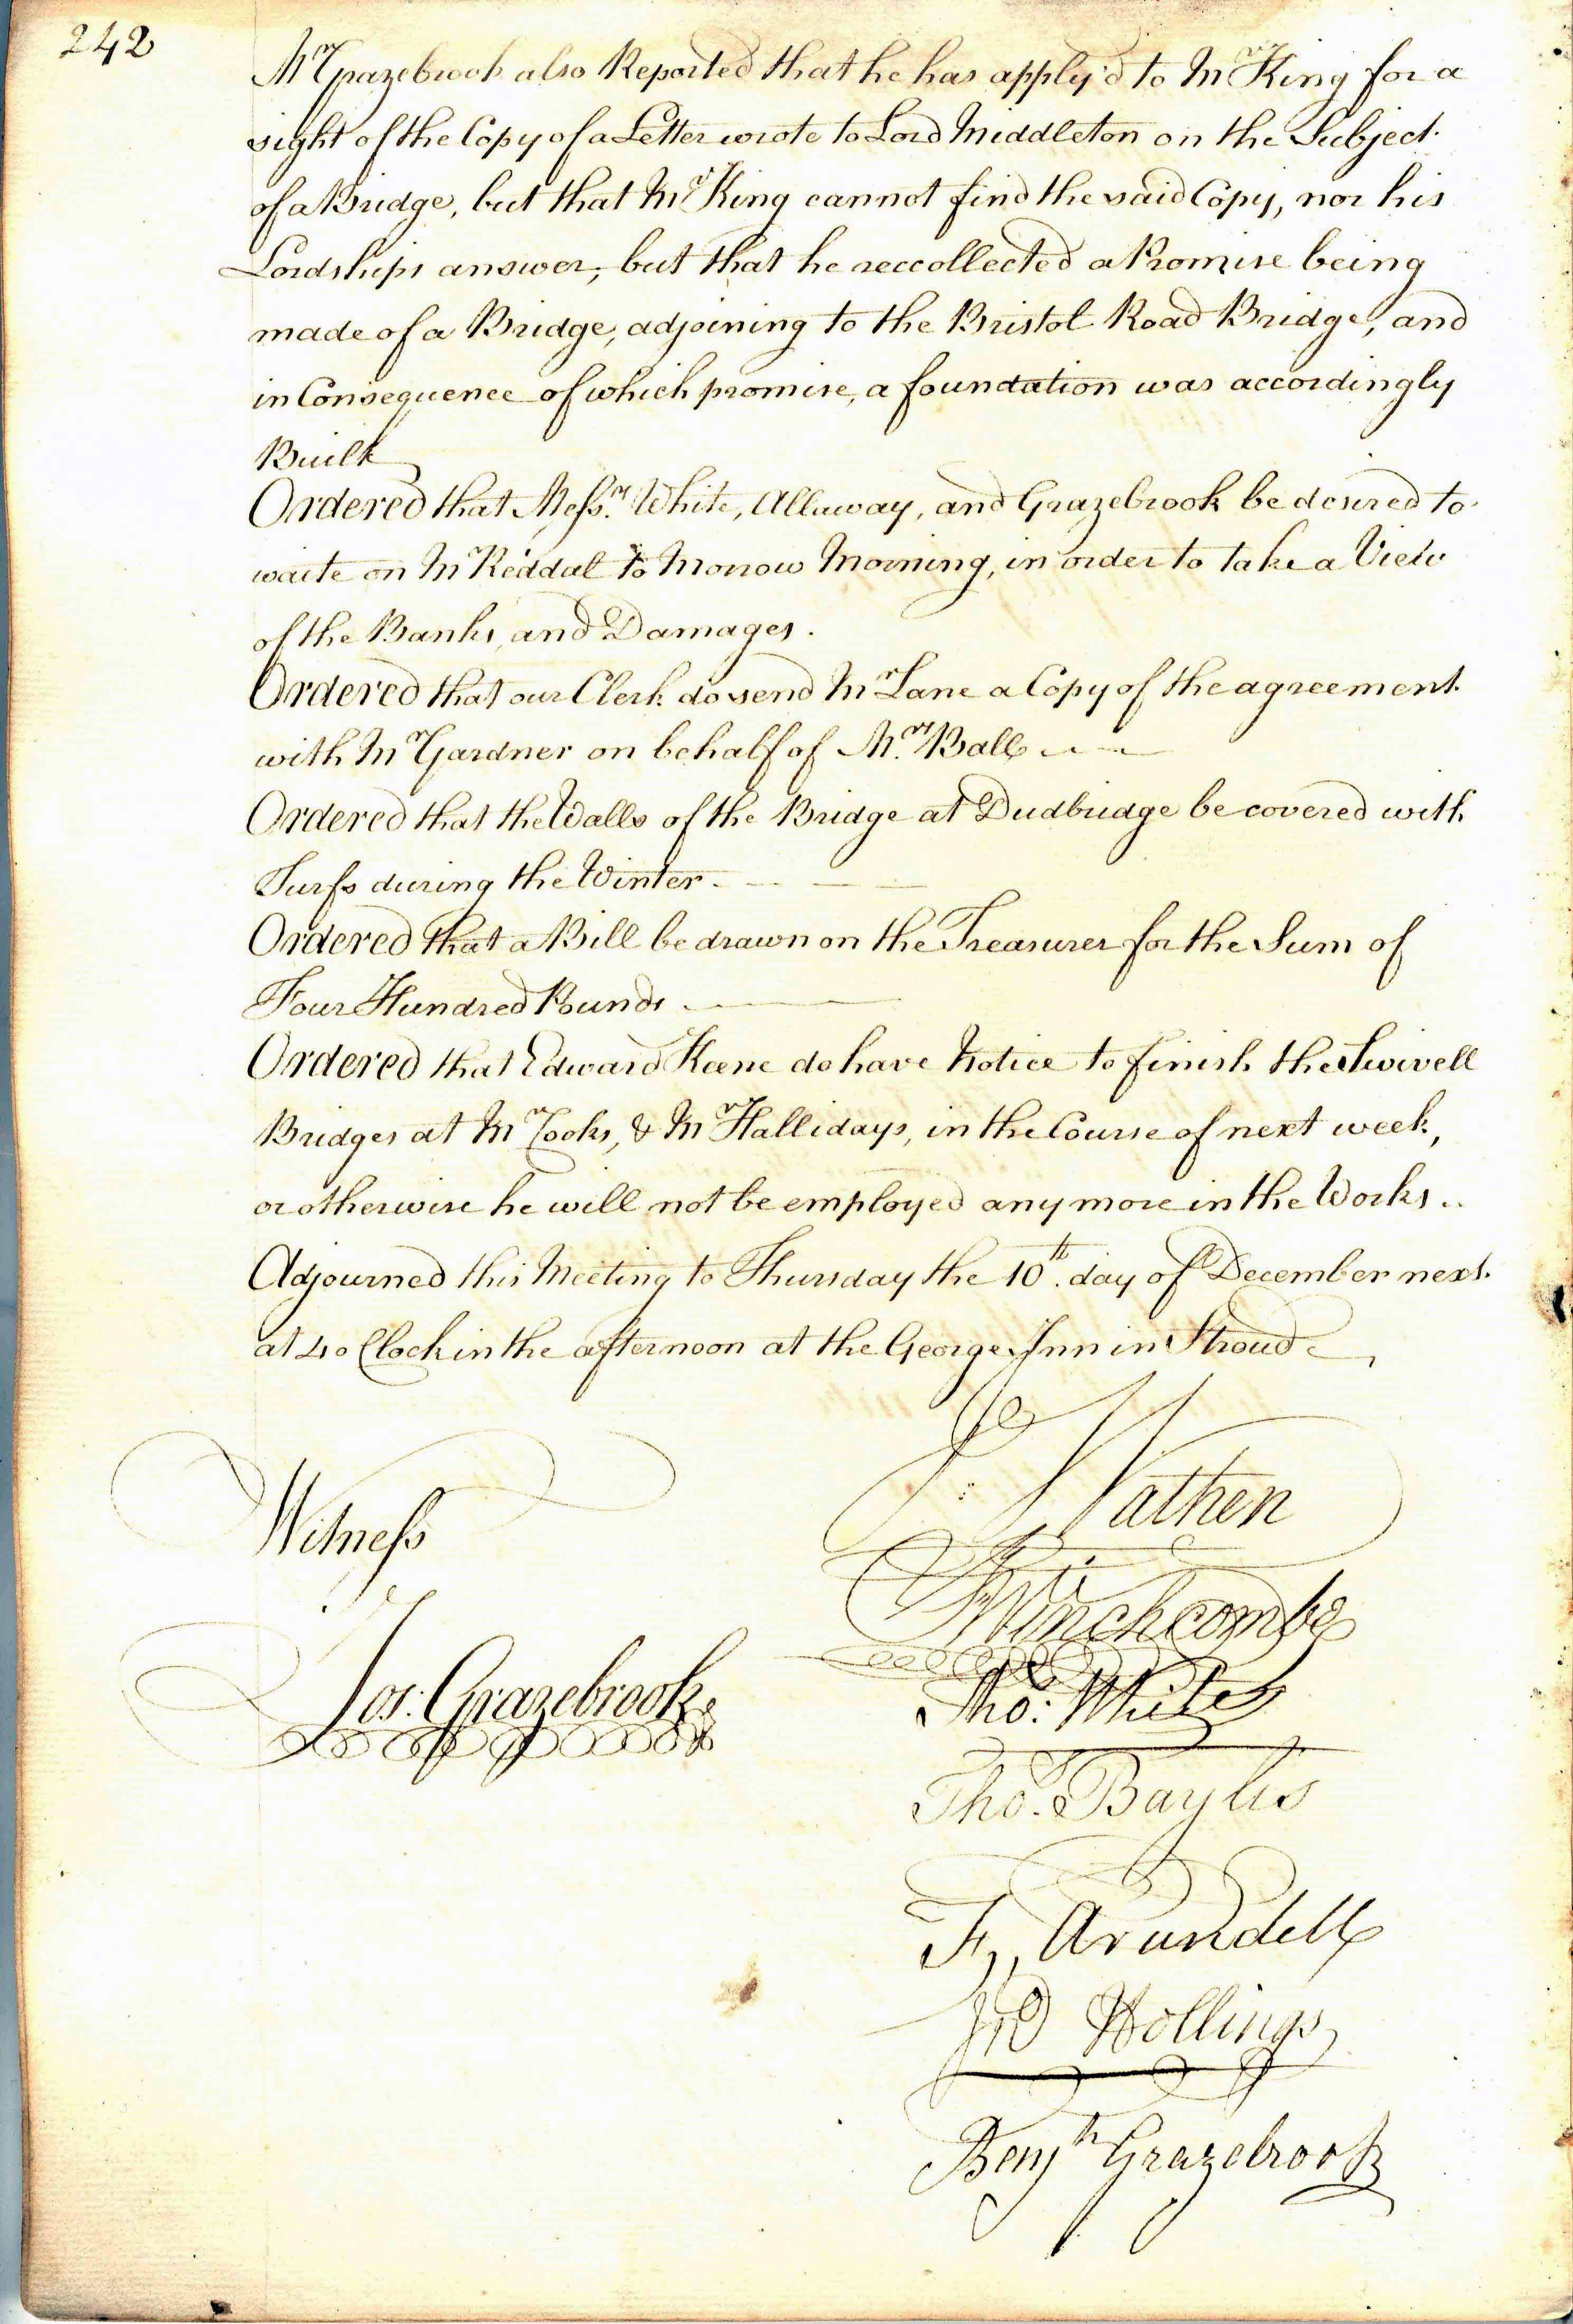 242
Mr Grazebrook also Reported that he has apply'd to Mr King for a
sight of the Copy of a Letter wrote to Lord Middleton on the Subject
of a Bridge, but that Mr King cannot find the said Copy, nor his
Lordships answer, but that he reccollected a Promise being
made of a Bridge, adjoining to the Bristol Road Bridge, and
in Consequence of which promise, a foundation was accordingly
Built
Ordered that Messrs. White, Allaway, and Grazebrook be desired to
waite on Mr Keddal to Morrow Morning, in order to take a View
of the Banks, and Damages.
Ordered that our Clerk do send Mr Lane a Copy of the agreement
with Mr Gardner on behalf of Mrs. Ball
Ordered that the Walls of the Bridge at Dudbridge be covered with
Turfs during the Winter
Ordered that a Bill be drawn on the Treasurer for the Sum of
Four Hundred Pounds
Ordered that Edward Keene do have Notice to finish the Swivell
Bridges at Mr Cooks, & Mr Hallidays, in the Course of next week,
or otherwise he will not be employed any more in the Works..
Adjourned this Meeting to Thursday the 10th. day of December next
at 4 o Clock in the afternoon at the George Inn in Stroud
Wathen
Witness
Winchcombe
Jos: Grazebrook
Tho: White
Tho. Baylis
F, Arundell
Jno Hollings
Benjn Grazebrook